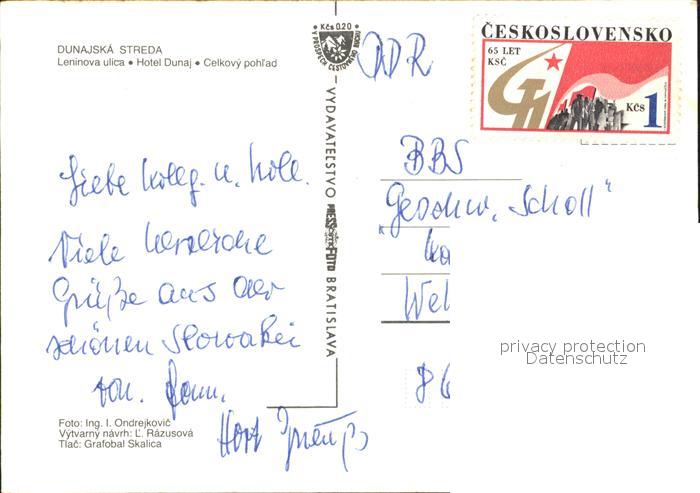 DUNAJSKÁ STREDA
Leninova ulica • Hotel Dunaj • Celkový pohľad
Kčs 0,20
V PROSPECH CESTOVNÉHO RUCHU
ČESKOSLOVENSKO
65 LET
KSČ
Kčs 1
DDR
VYDAVATEĽSTVO PRESSFOTO BRATISLAVA
BBS
"Geschw. Scholl"
Liebe Kolleg. u. Koll.
Viele herzliche
Grüße aus der
schönen Slowakei
von Fam.
Horst
Foto: Ing. I. Ondrejkovič
Výtvarný návrh: Ľ. Rázusová
Tlač: Grafobal Skalica
privacy protection
Datenschutz